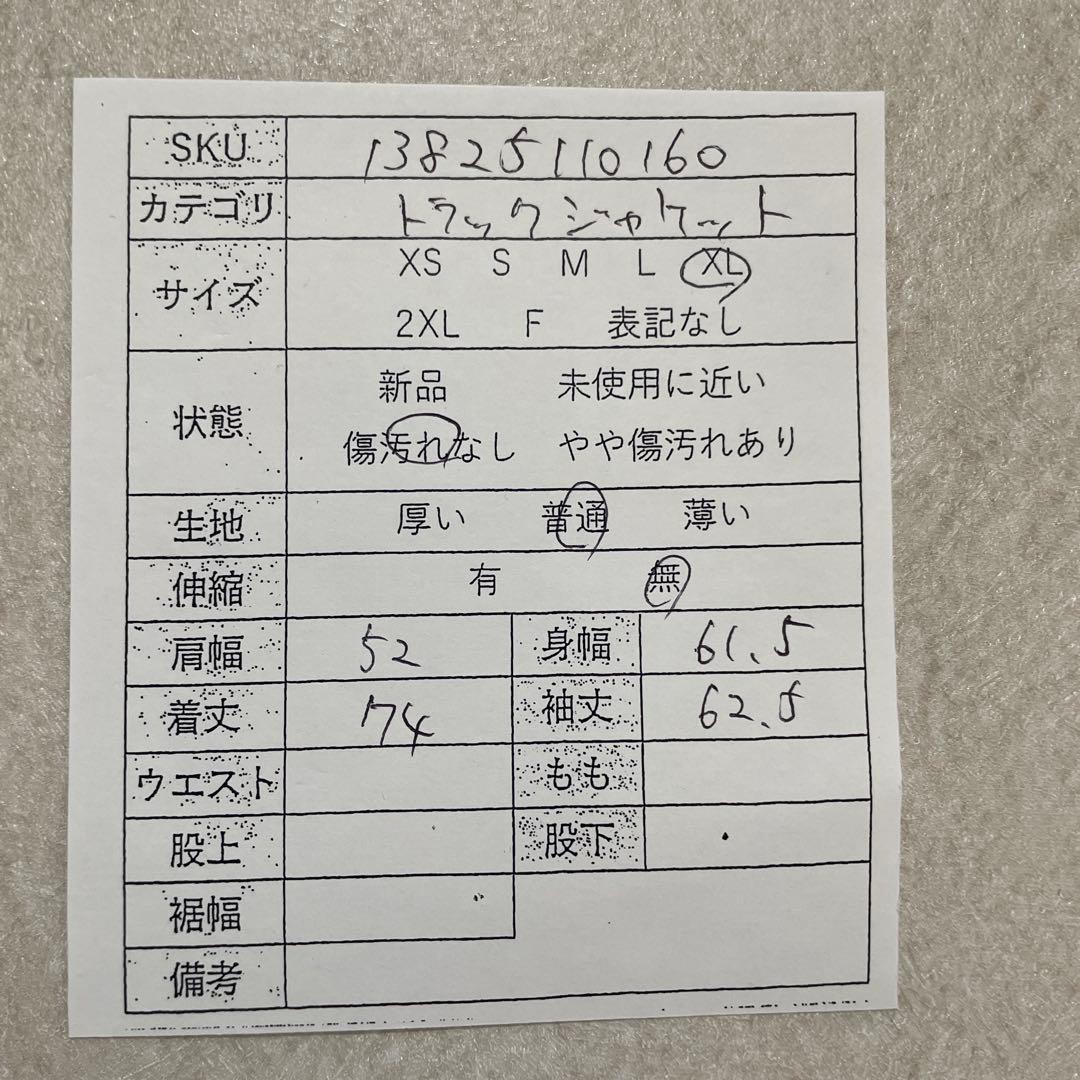 SKU 13825110160
カテゴリ トラックジャケット
サイズ XS S M L XL
2XL F 表記なし
状態 新品 未使用に近い
傷汚れなし やや傷汚れあり
生地 厚い 普通 薄い
伸縮 有 無
肩幅 52 身幅 61.5
着丈 74 袖丈 62.5
ウエスト もも
股上 股下
裾幅
備考